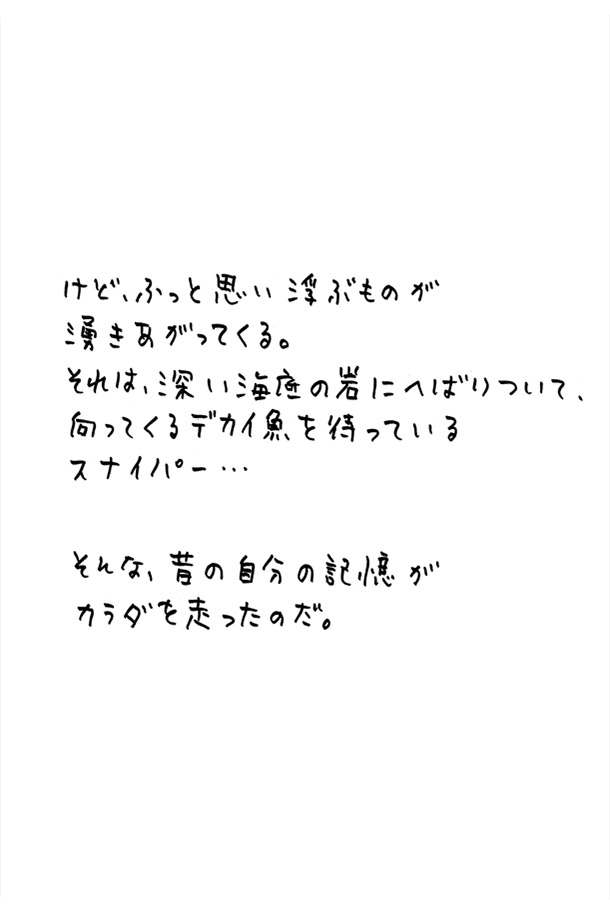 けど、ふっと思い浮ぶものが
湧きあがってくる。
それは、深い海底の岩にへばりついて、
向ってくるデカイ魚を待っている
スナイパー…
そんな、昔の自分の記憶が
カラダを走ったのだ。